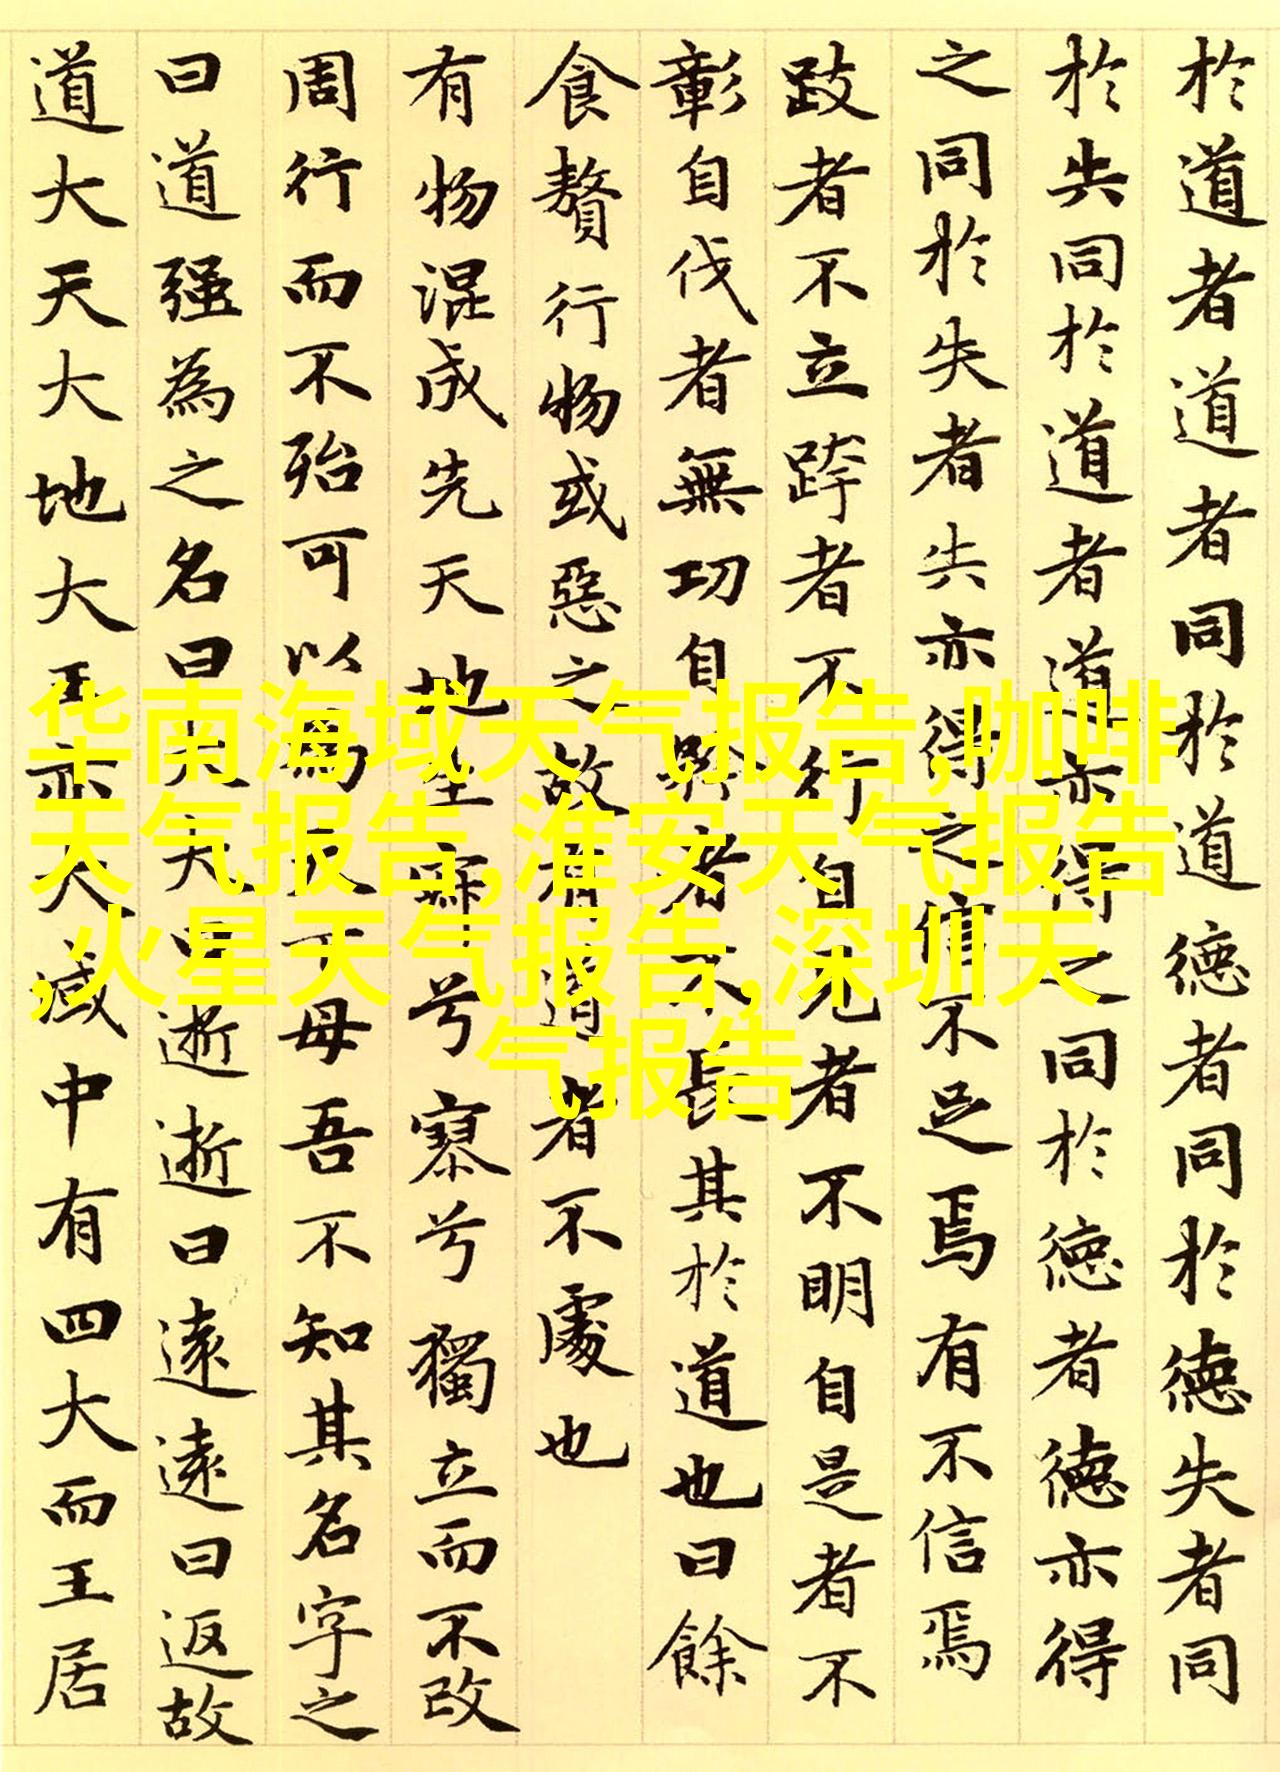 於道者道者同於道德者同於德失者同
於失同於道者道亦得之同於德者德亦得
之同於失者失亦得之信不足焉有不信焉
跂者不立跨者不行自見者不明自是者不
彰自伐者無功自矜者不長其於道也曰餘
食贅行物或惡之故有道者不處也
有物混成先天地生寂兮寥兮獨立而不改
周行而不殆可以為天下母吾不知其名字之
曰道强為之名曰大大曰逝逝曰遠遠曰返故
道大天大地大王亦大域中有四大而王居
华南海域天气报告,咖啡
天气报告,淮安天气报告
,火星天气报告,深圳天
气报告